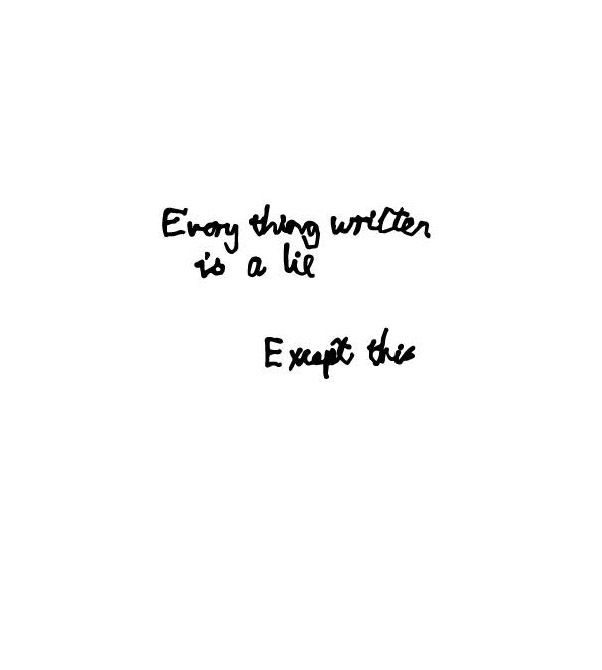 Every thing written
is a lie
Except this